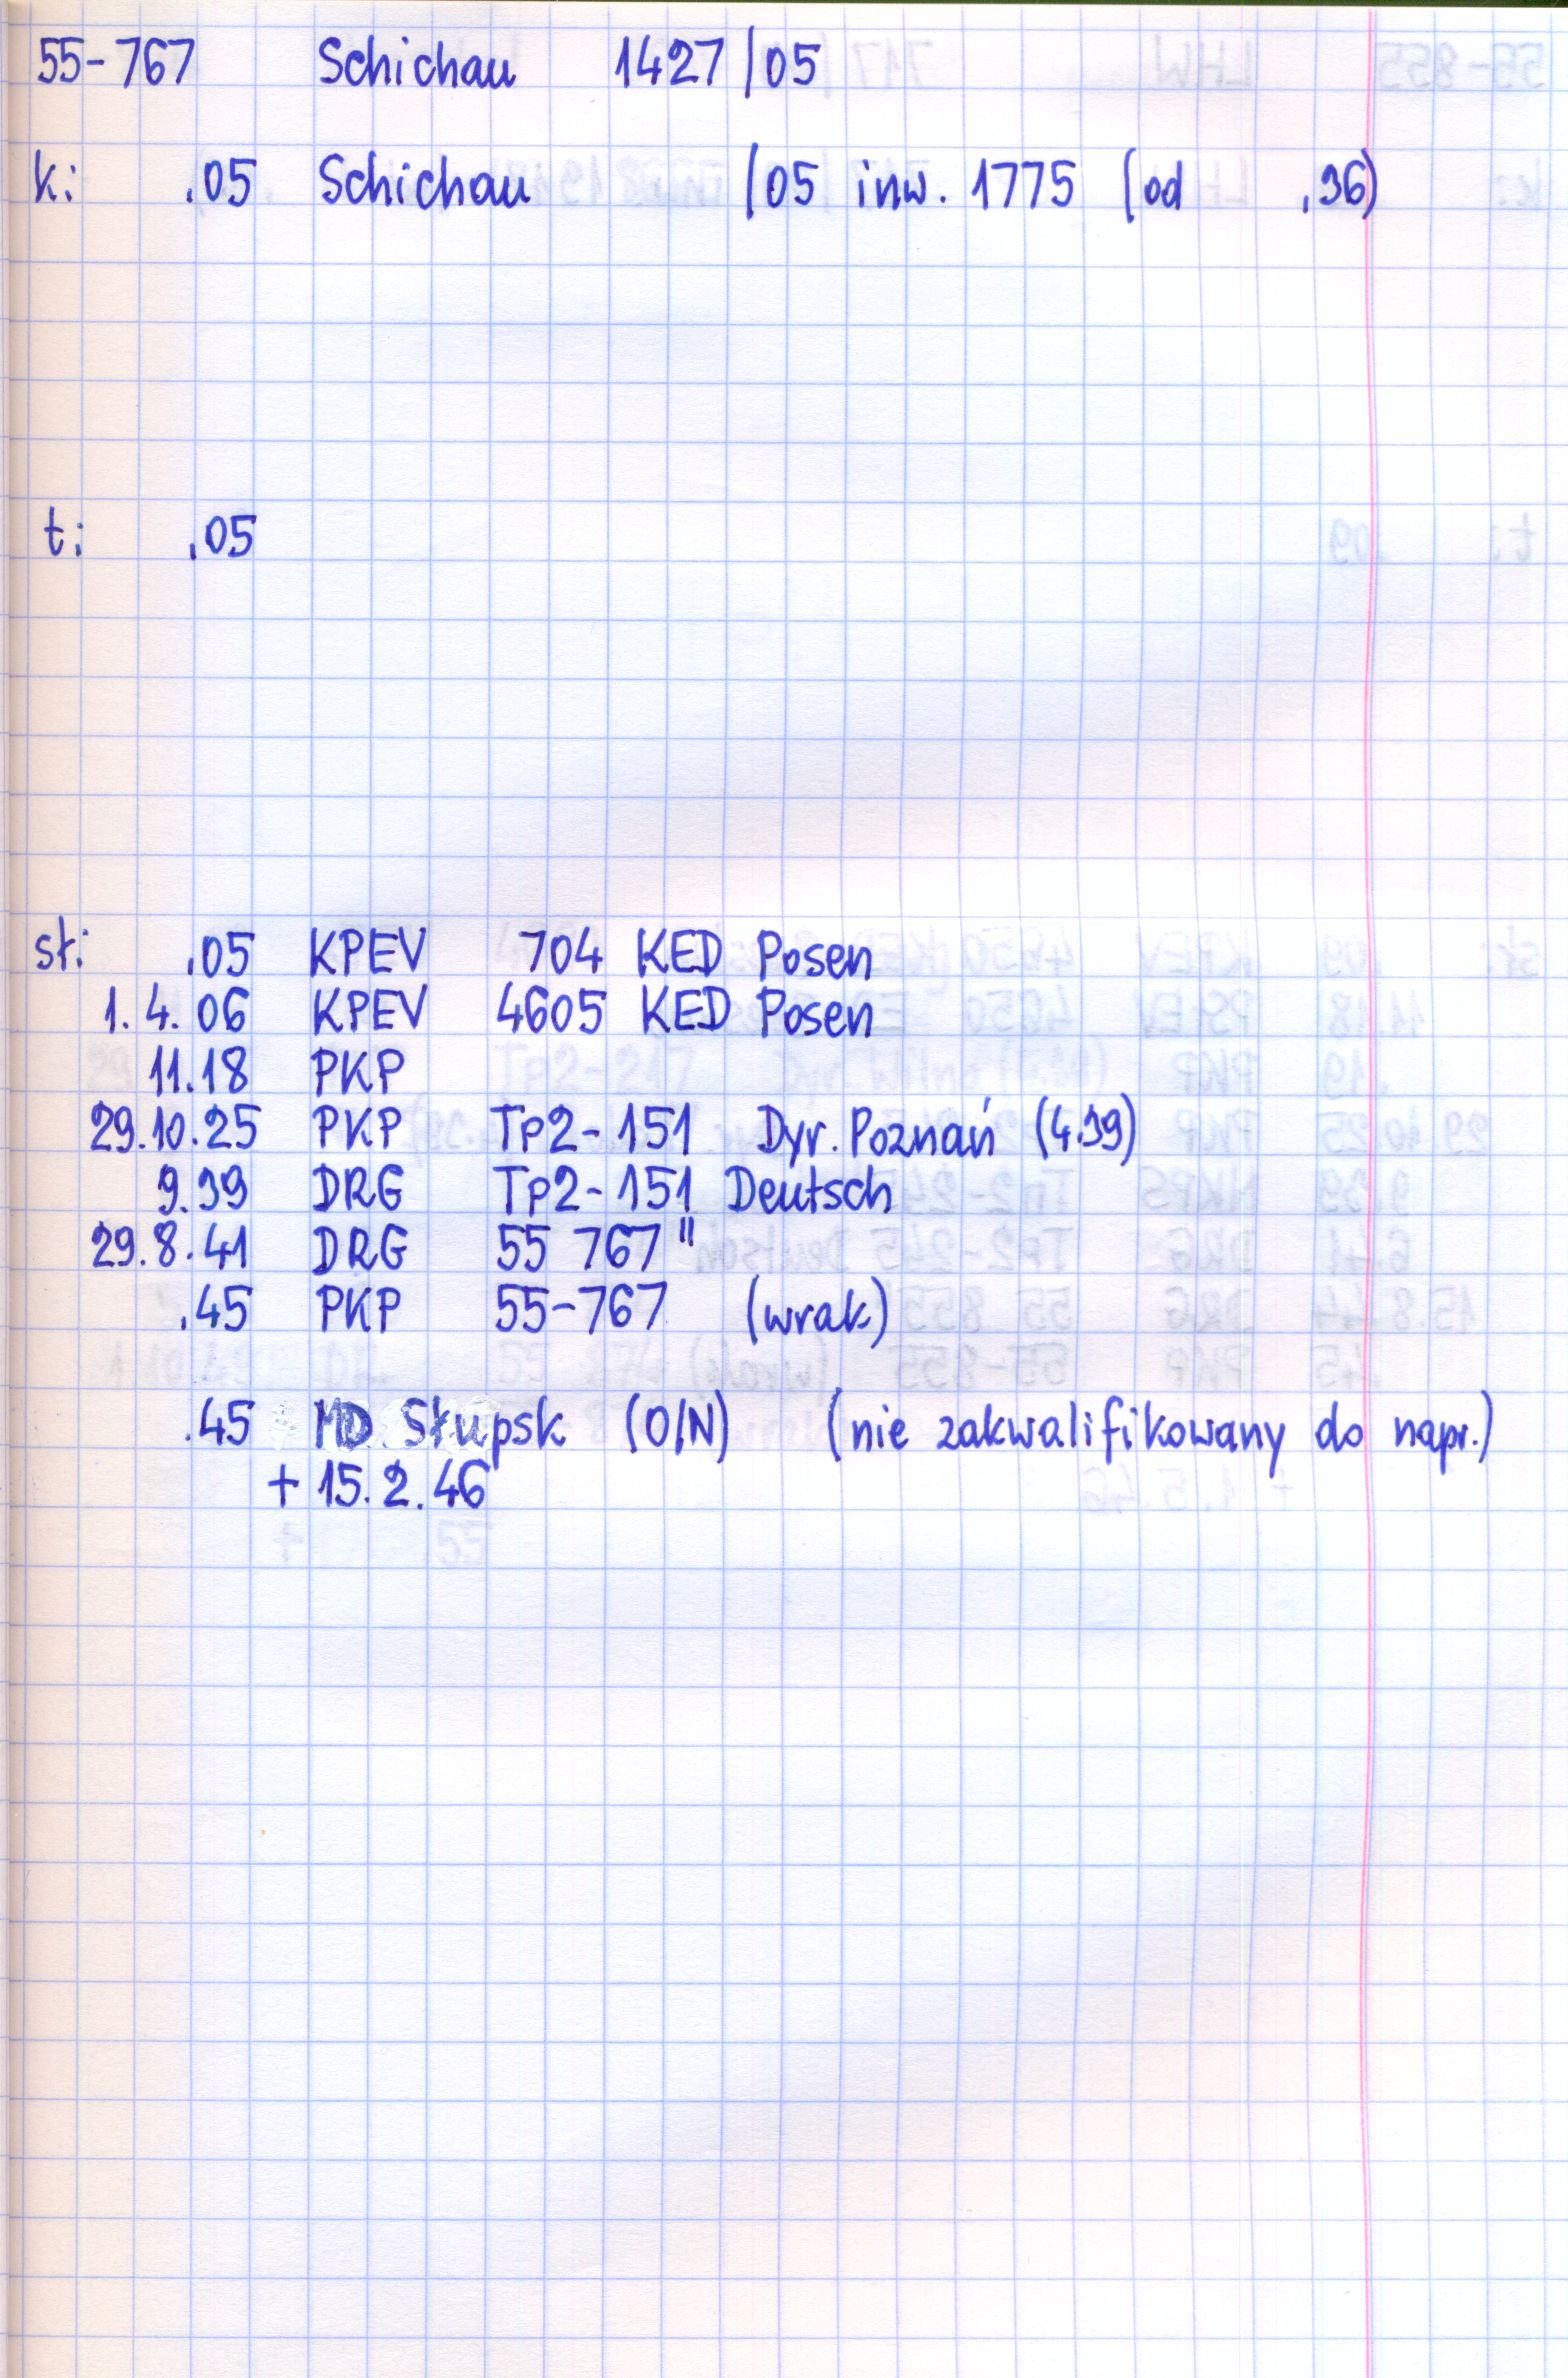 55-767 Schichau 1427/05
k: .05 Schichau /05 inw. 1775 (od .36)
t: .05
sł: .05 KPEV 704 KED Posen
1.4.06 KPEV 4605 KED Posen
11.18 PKP
29.10.25 PKP Tp2-151 Dyr. Poznań (4.39)
9.39 DRG Tp2-151 Deutsch
29.8.41 DRG 55 767"
.45 PKP 55-767 (wrak)
.45 MD Słupsk (O/N) (nie zakwalifikowany do napr.)
+ 15.2.46